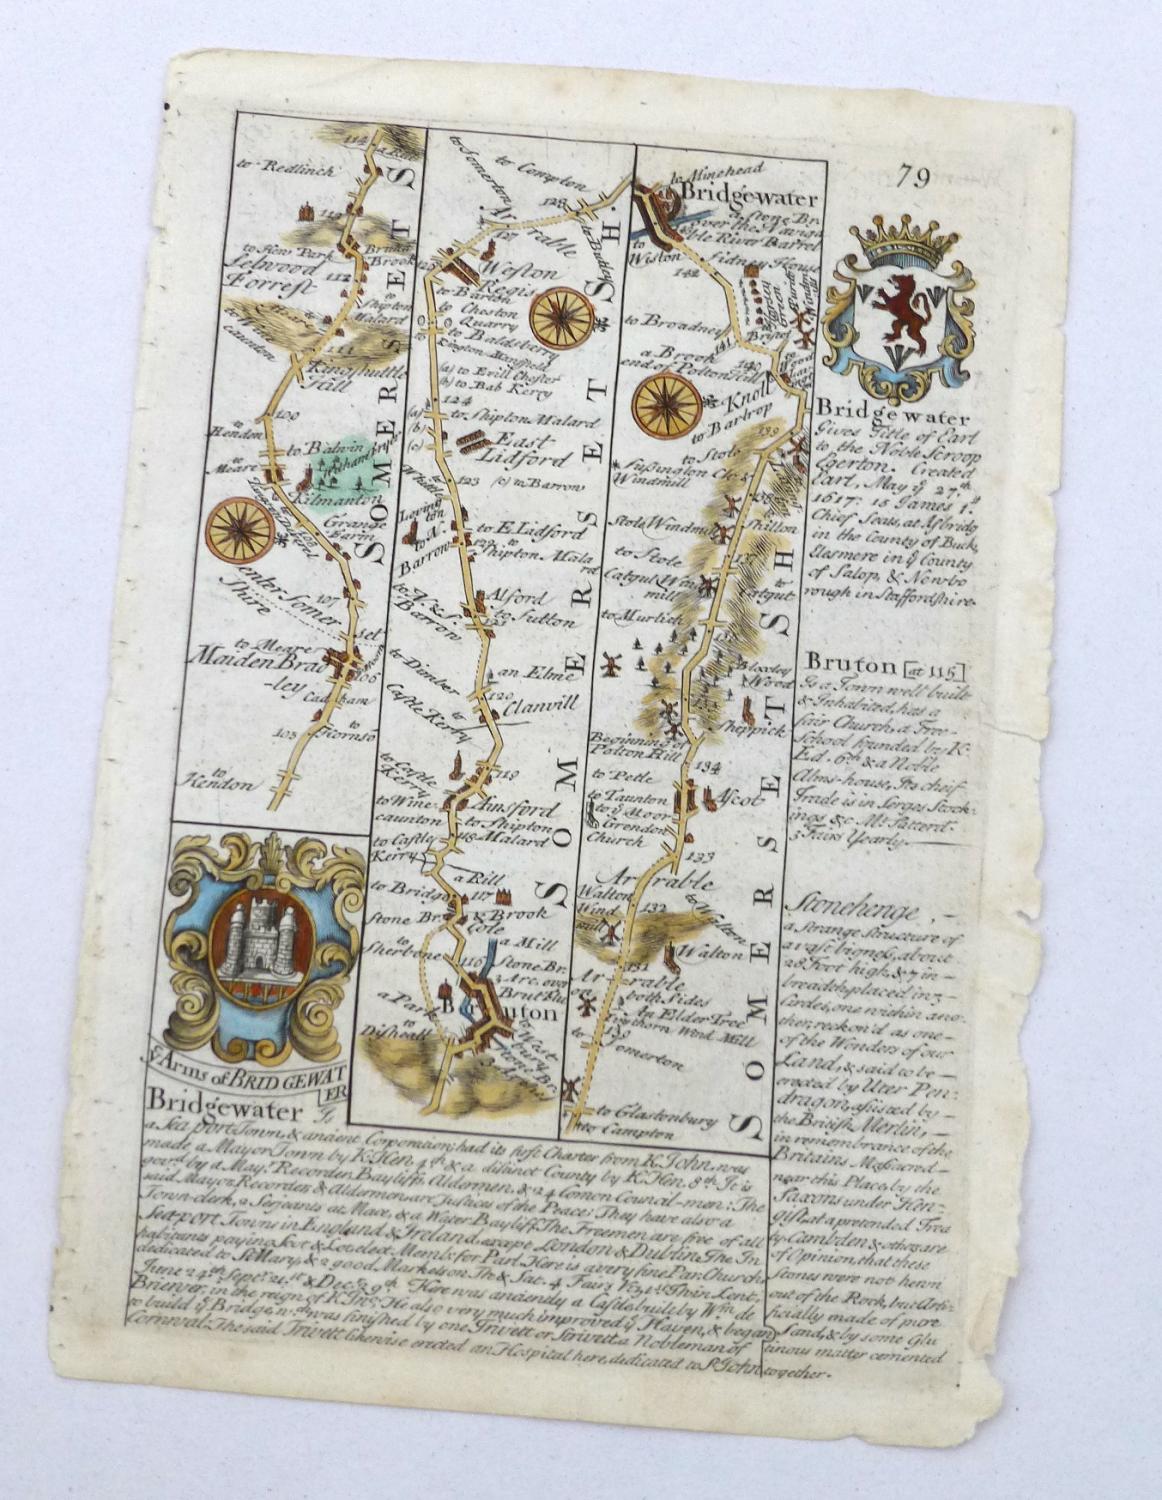 79
to Redlinch
114
a Rill
113
to New Park
Selwood
Forrest
Brook
112
to Shipton
Malard
111
Kingshuttle
Hill
109
to
Hendon
to Balwin
to
Meare
Kilmanton
Grange
Farm
108
107
enter Somer
set
Shire
to Meare
Maiden Brad
-ley
106
105
to
Hornso
to
Hendon
SOMERSETS
to Somerton
to Compton
128
Arable
127
to Butley
Weston
Regis
to Barton
to Cheston
Quarry
to Baldsberry
Kington Mansfield
(a) to Evill Chester
(b) to Bab Kerry
124
(a)
(b)
(c)
to Shipton Malard
East
Lidford
123
(c) to Barrow
Loving
ton
to N.
Barrow
to E. Lidford
122
to
Shipton Mala
rd
Alford
to Sutton
121
to N. & S.
Barrow
to Dimber
an Elme
120
Clanvill
to
Castle Kerry
119
to Castle
Kerry
Ansford
to Wine
caunton
to Shipton
Malard
118
to Castle
Kerry
a Rill
to Bridge
117
Stone Br.
& Brook
Cole
to
Sherborne
a Mill
116
Stone Br.
3 Arc. over
Brut Flu
a Park
Bruton
to West
bury
Stone Br.
SOMERSETSH.
to Minehead
Bridgewater
a Stone Br.
over the Naviga
ble River Barrel
to
Wiston
142
Sidney House
Horsey
Green
to Broadney
141
a Brook
end of Polton Hill
140
Knoll
to Bartrop
139
to Stole
Sussington Ch. &
Windmill
138
Stole Windmill
Shillon
to Stole
137
Catgut Wind
mill
to
Catgut
to Murlich
136
Bloxley
Wood
135
Sheppick
Beginning of
Polton Hill
134
to Petle
to Taunton
to ye Moor
Grendon
Church
Ascot
133
Arrable
Walton
Wind
mill
132
to Walton
Walton
131
Arrable
both Sides
An Elder Tree
Ivythorn Wind Mill
130
to
Somerton
to Glastonbury
to Campton
SOMERSETSH
Bridgewater
Gives Title of Earl
to the Noble Scroop
Egerton. Created
Earl, May ye 27.th
1617. 15 James 1.st
Chief Seats, at Asbridg
in the County of Buck,
Elesmere in ye County
of Salop, & Newbo
rough in Staffordshire.
Bruton [at 115]
Is a Town well built
& Inhabited, has a
fair Church, a Free-
school founded by K.
Ed. 6.th & a Noble
Alms-house, Its cheif
Trade is in Serges Stock-
ings &c. Mt. Satterd.
3 Fairs Yearly.
Stonehenge. -
a Strange Structure of
a vast bigness, about
28 Foot high, & 7 in -
breadth, placed in 3 -
Circles, one within ano-
ther, reckon'd as one -
of the Wonders of our
Land, & said to be -
erected by Uter Pen-
dragon, assisted by -
the British Merlin, -
in remembrance of the
Britains Massacred -
near this Place, by the
Saxons under Hen-
gist, at a pretended Trea
ty. Cambden & others are
of Opinion, that these
Stones were not hewn
out of the Rock, but Arti-
ficially made of pure
Sand, & by some Glu
tinous matter cemented
together.
Ye Arms of BRIDGEWAT
ER
Bridgewater Is
a Sea port Town, & ancient Corporation; had its first Charter from K. John, was
made a Mayor Town by K. Hen. 4.th & a distinct County by K. Hen. 8.th It is
gov.d by a May.r Recorder, Bayliffs, Aldermen, & 24 Comon Council-men: The
said Mayor, Recorder, & Aldermen are Justices of the Peace: They have also a
Town-clerk, 2 Serjeants at Mace, & a Water Bayliff. The Freemen are free of all
Seaport Towns in England & Ireland, except London & Dublin. The In
habitants paying Scot & Lot elect Memb.s for Parl. Here is a very fine Par. Church
dedicated to St. Mary, & 2 good Markets on Th. & Sat. 4 Fairs Viz. 1.st Th. in Lent,
June 24.th Sept.r 21.st & Dec.r 29.th Here was anciently a Castle built by W.m de
Briewer, in the reign of K. Jno. He also very much improved ye Haven, & began
to build ye Bridge, w.ch was finished by one Trivett or Strivett a Nobleman of
Cornwal. The said Trivett likewise erected an Hospital here, dedicated to St. John